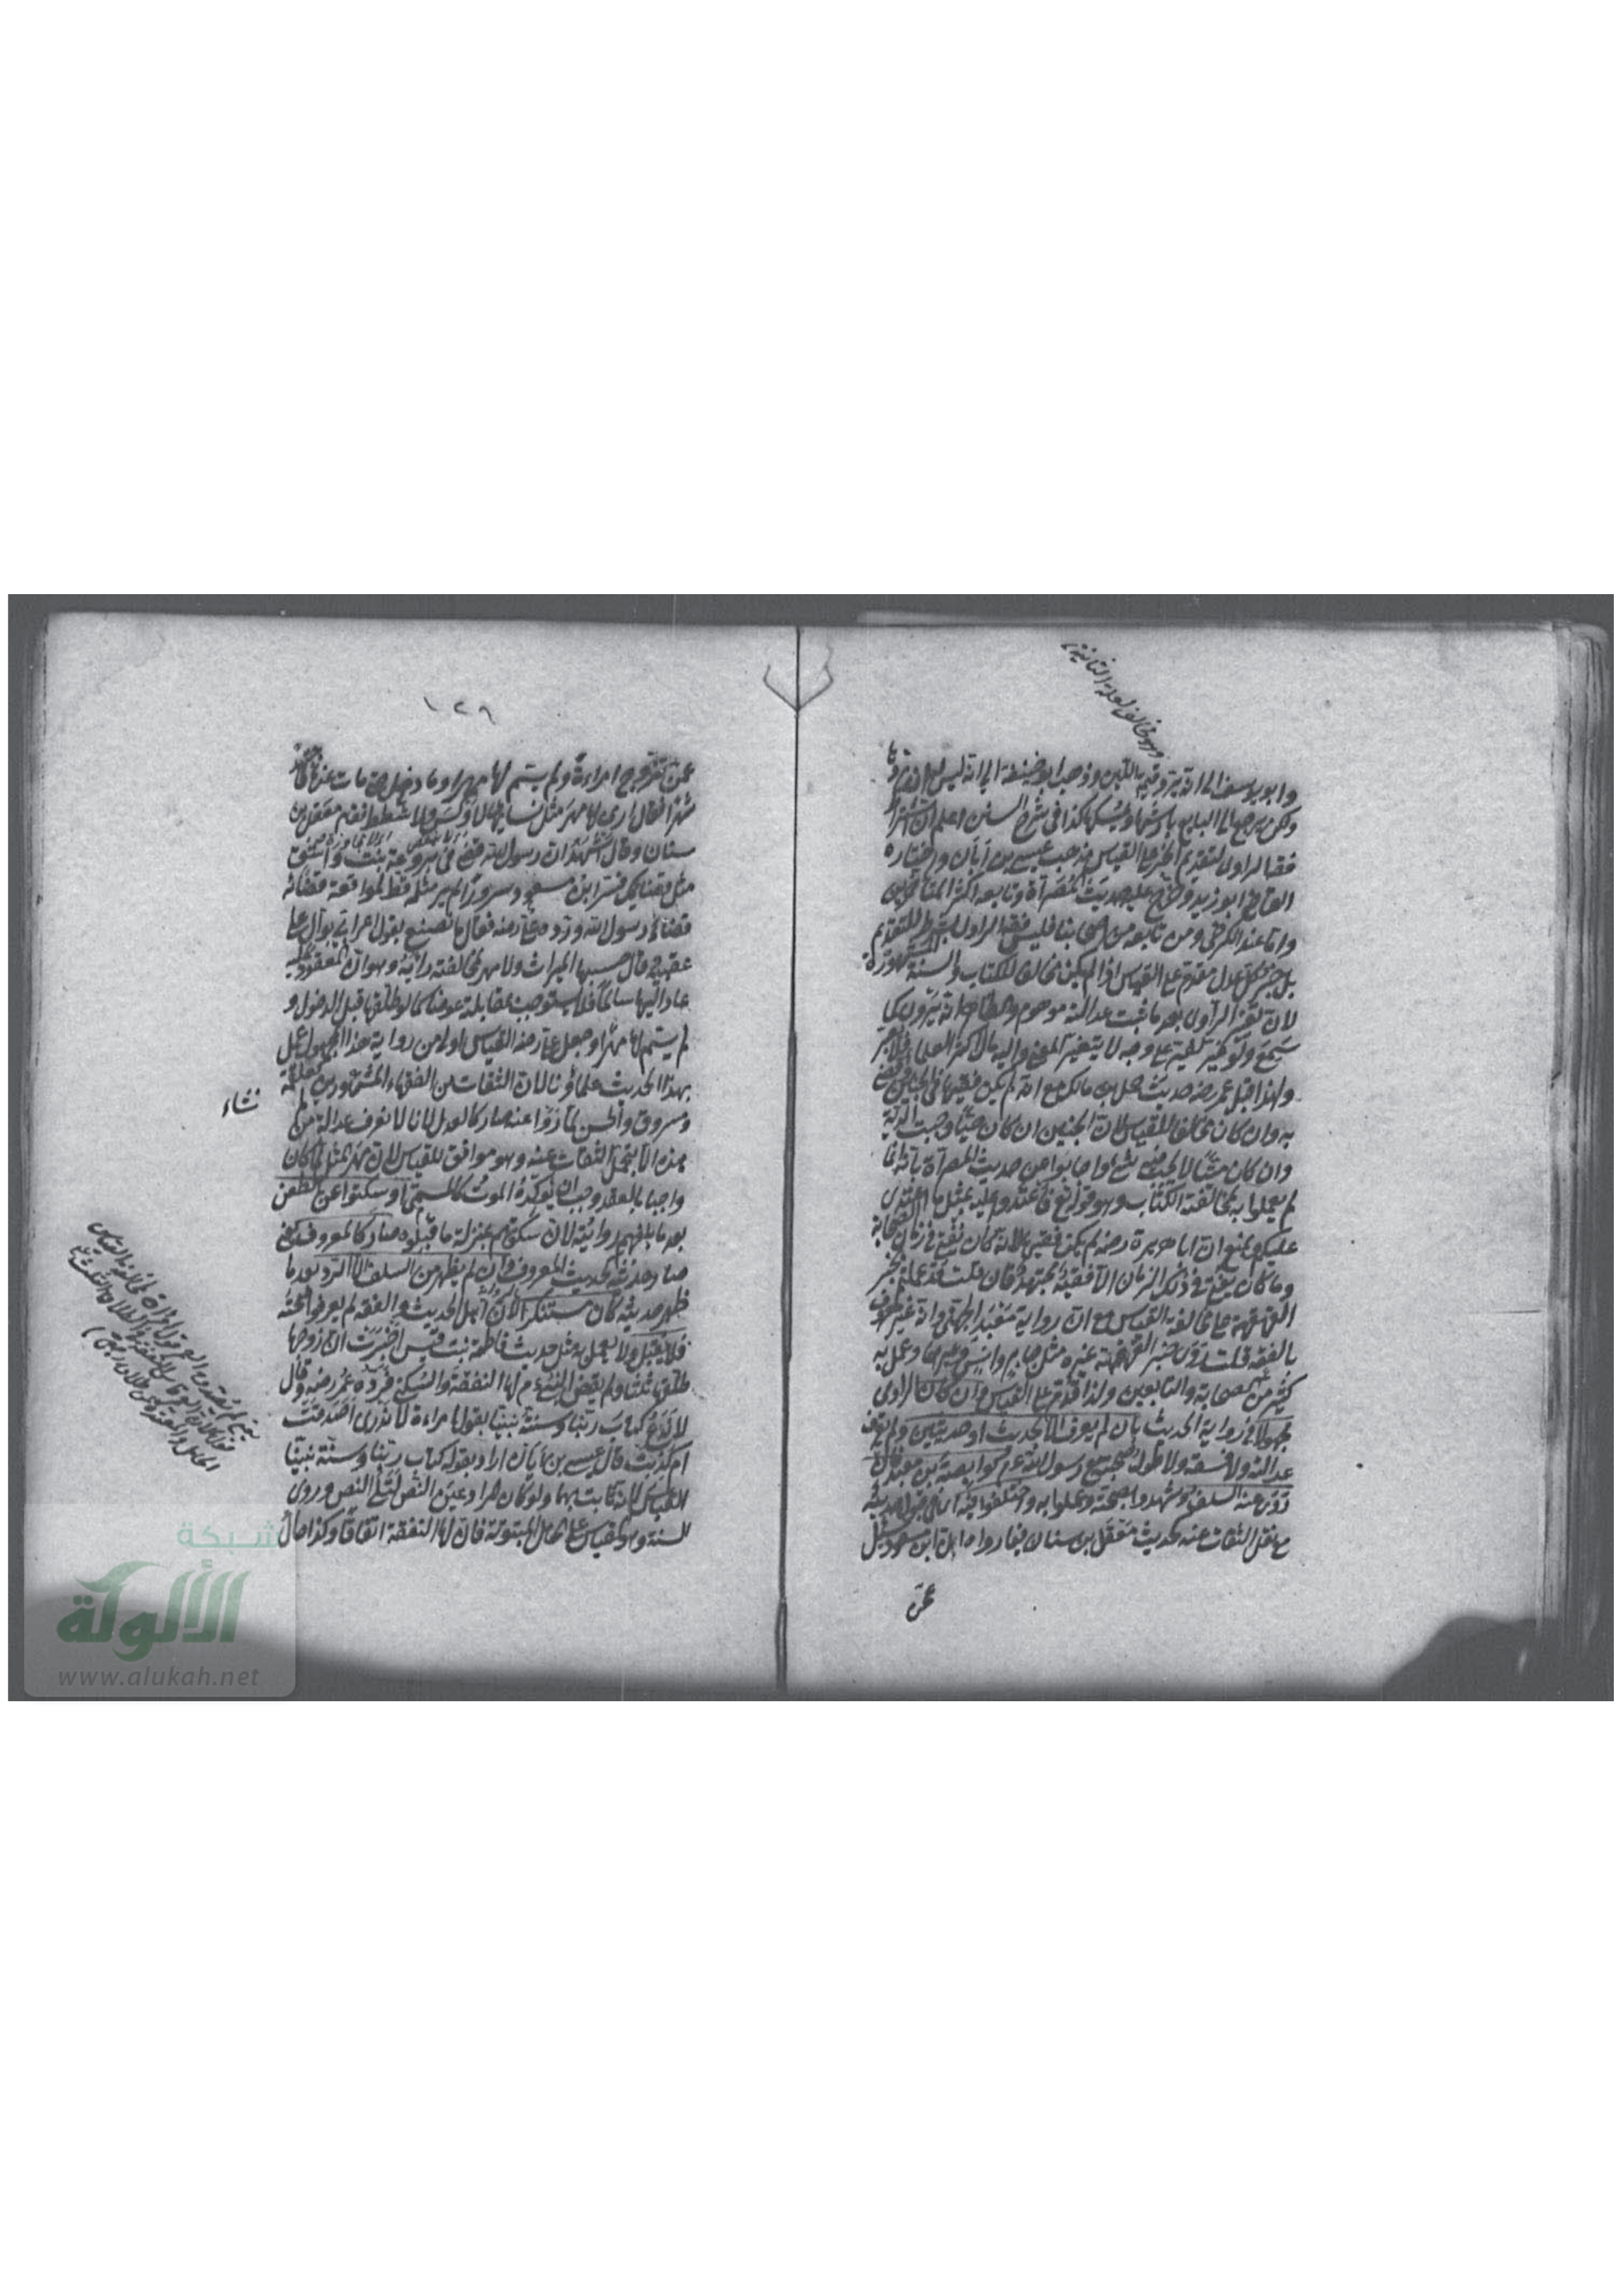 وابو يوسف الى انه يرد قيمة اللبن وذهب ابو حنيفة الى انه ليس له ان يردها
ولكن يرجع الى البايع بارشها ويمسكها كذا في شرح السنن اعلم ان اشتراط
فقه الراوي لتقديم الخبر على القياس مذهب عيسى بن ابان واختاره
القاضي ابو زيد وخرج عليه حديث المصراة وتابعه اكثر المتأخرين
واما عند الكرخي ومن تابعه من اصحابنا فليس فقه الراوي بشرط للتقديم
بل خبر كل عدل مقدم على القياس اذا لم يكن مخالفا للكتاب والسنة المشهورة
لان تغير الراوي بعد ما ثبت عدالته موهوم والظاهر انه يروي كما
سمع ولو غير لغير على وجه لا يتغير المعنى واليه مال اكثر العلماء
ولهذا قبل عمر رضه حديث حمل بن مالك مع انه لم يكن فقيها في الجنين وقضى
به وان كان مخالفا للقياس لان الجنين ان كان حيا وجبت الدية
وان كان ميتا لا يجب فيه شيء واجابوا عن حديث المصراة بانه انما
لم يعملوا به لمخالفته الكتاب وهو قوله تع فاعتدوا عليه بمثل ما اعتدى
عليكم ويمنع ان ابا هريرة رضه لم يكن فقيها لانه كان يفتي في زمان الصحابة
وما كان يفتي في ذلك الزمان الا فقيه مجتهد فان قلت قد عملتم بخبر
القهقهة مع مخالفته القياس مع ان رواية معبد الجهني وانه غير معروف
بالفقه قلت روى خبر القهقهة غيره مثل جابر وانس وغيرهما وعمل به
كثير من الصحابة والتابعين ولذا قدم على القياس وان كان الراوي
مجهولا في رواية الحديث بان لم يعرف الا بحديث او حديثين ولم يعرف
عدالته ولا فسقه ولا طول صحبته مع رسول الله عم كوابصة بن معبد فان
روى عنه السلف وشهدوا بصحته وعملوا به او اختلفوا فيه اي في قبول حديثه
مع نقل الثقات عنه كحديث معقل بن سنان فيما رواه ان ابن مسعود سئل
عمن
١٢٨
عمن تزوج امراة ولم يسم لها مهرا وما دخل حتى مات عنها
شهرا فقال ارى لها مهر مثل نسائها لا وكس ولا شطط فقام معقل بن
سنان وقال اشهد ان رسول الله قضى في بروع بنت واشق
مثل قضائك فسر ابن مسعود سرورا لم ير مثله قط لموافقة قضائه
قضاء رسول الله ورده علي رضه فقال ما نصنع بقول اعرابي بوال على
عقبيه قال حسبها الميراث ولا مهر لمخالفته رأيه وهو ان المعقود عليه
عاد اليها سالما فلا يستوجب بمقابلته عوضا كما لو طلقها قبل الدخول و
لم يسم لها مهرا وجعل علي رضه القياس اولى من رواية هذا المجهول وعمل
بهذا الحديث علماؤنا لان الثقات من الفقهاء المشهورين كعلقمة
ومسروق والحسن لما رووا عنه صار كالعدل لانا لا نعرف عدالة من لم
نشاء
هذه الا بنقل الثقات عنه وهو موافق للقياس لان مهر المثل لما كان
واجبا بالعقد وجب ان يؤكده الموت كالمسمى او سكتوا عن الطعن
بعد ما بلغهم روايته لان سكوتهم بمنزلة ما قبلوه صار كالمعروف
صار حديثه كحديث المعروف وان لم يظهر من السلف الا الرد بعد ما
ظهر حديثه كان مستنكرا لان اهل الحديث والفقه لم يعرفوا صحته
فلا يقبل ولا يعمل به مثل حديث فاطمة بنت قيس اخبرت ان زوجها
طلقها ثلثا ولم يقض النبي عم لها النفقة والسكنى فرده عمر رضه وقال
لا ندع كتاب ربنا وسنة نبينا بقول امراة لا ندري اصدقت
ام كذبت قال عيسى بن ابان اراد بقوله كتاب ربنا وسنة نبينا
القياس لانه ثابت بهما ولو كان مراده عين النص لتلى النص وروى
السنة وهو القياس على الحامل المبتوتة فان لها النفقة اتفاقا وكذا
شبكة
الألوكة
www.alukah.net